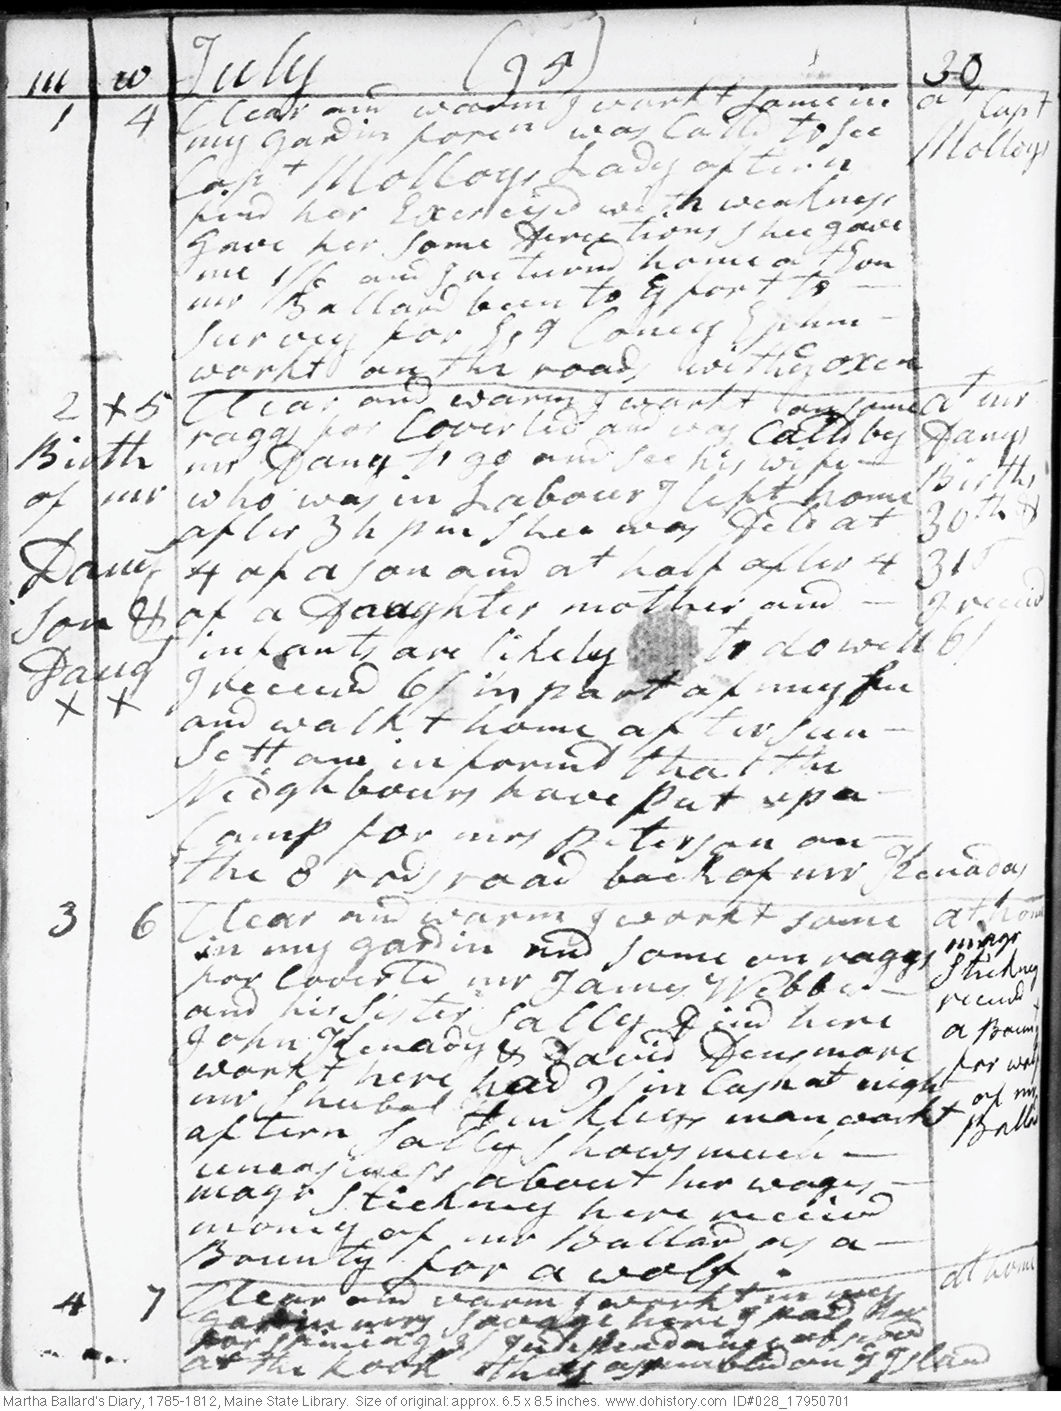 m w July (95) 30
1 4 Clear and warm I workt some in at Capt
my gardin foren was Calld to See Molloys
Capt Molloys Lady aftern
find her Exercised with weakness
Gave her some directions shee gave
me 1/6 and I returnd home at Even
mr Ballard been to
survey for Esq Coney Ephm
workt on the roads with oxen
2 x 5 Clear and warm I workt on some at mr
raggs for Coverlid and was Calld by Danys
Birth mr Dany to go and see his wife Births
of mr who was in Labour I left home 30th &
after 3 h pm Shee was Deld at
Danys 4 of a son and at half after 4 31st
Son & of a Daughter mother and I receivd
Daug infants are likely to do well 6/
x x I receivd 6/ in part of my fee
and walkt home after sun
sett am informd that the
Neighbours have Put up a
Camp for mrs Peterson on
the 8 rods road back of mr Kenadas
3 6 Clear and warm I workt some at home
in my gardin and some on raggs majr
for Coverld mr James Webber Stickney
and his Sister Sally Dind here receivd
John Kenady & David Densmore a Bounty
workt here had in Cash at night for wolf
mr Shubal man workt of mr
aftern Sally Shows much Ballard
uneasiness about her wages
majr Stickney here receivd
money of mr Ballard as a
Bounty for a wolf.
4 7 Clear and warm I workt in my at home
gardin mrs Savage here I paid her
for spining Independance
at the hook they assembled on Island
Martha Ballard's Diary, 1785-1812, Maine State Library. Size of original: approx. 6.5 x 8.5 inches. www.dohistory.com ID#028_17950701